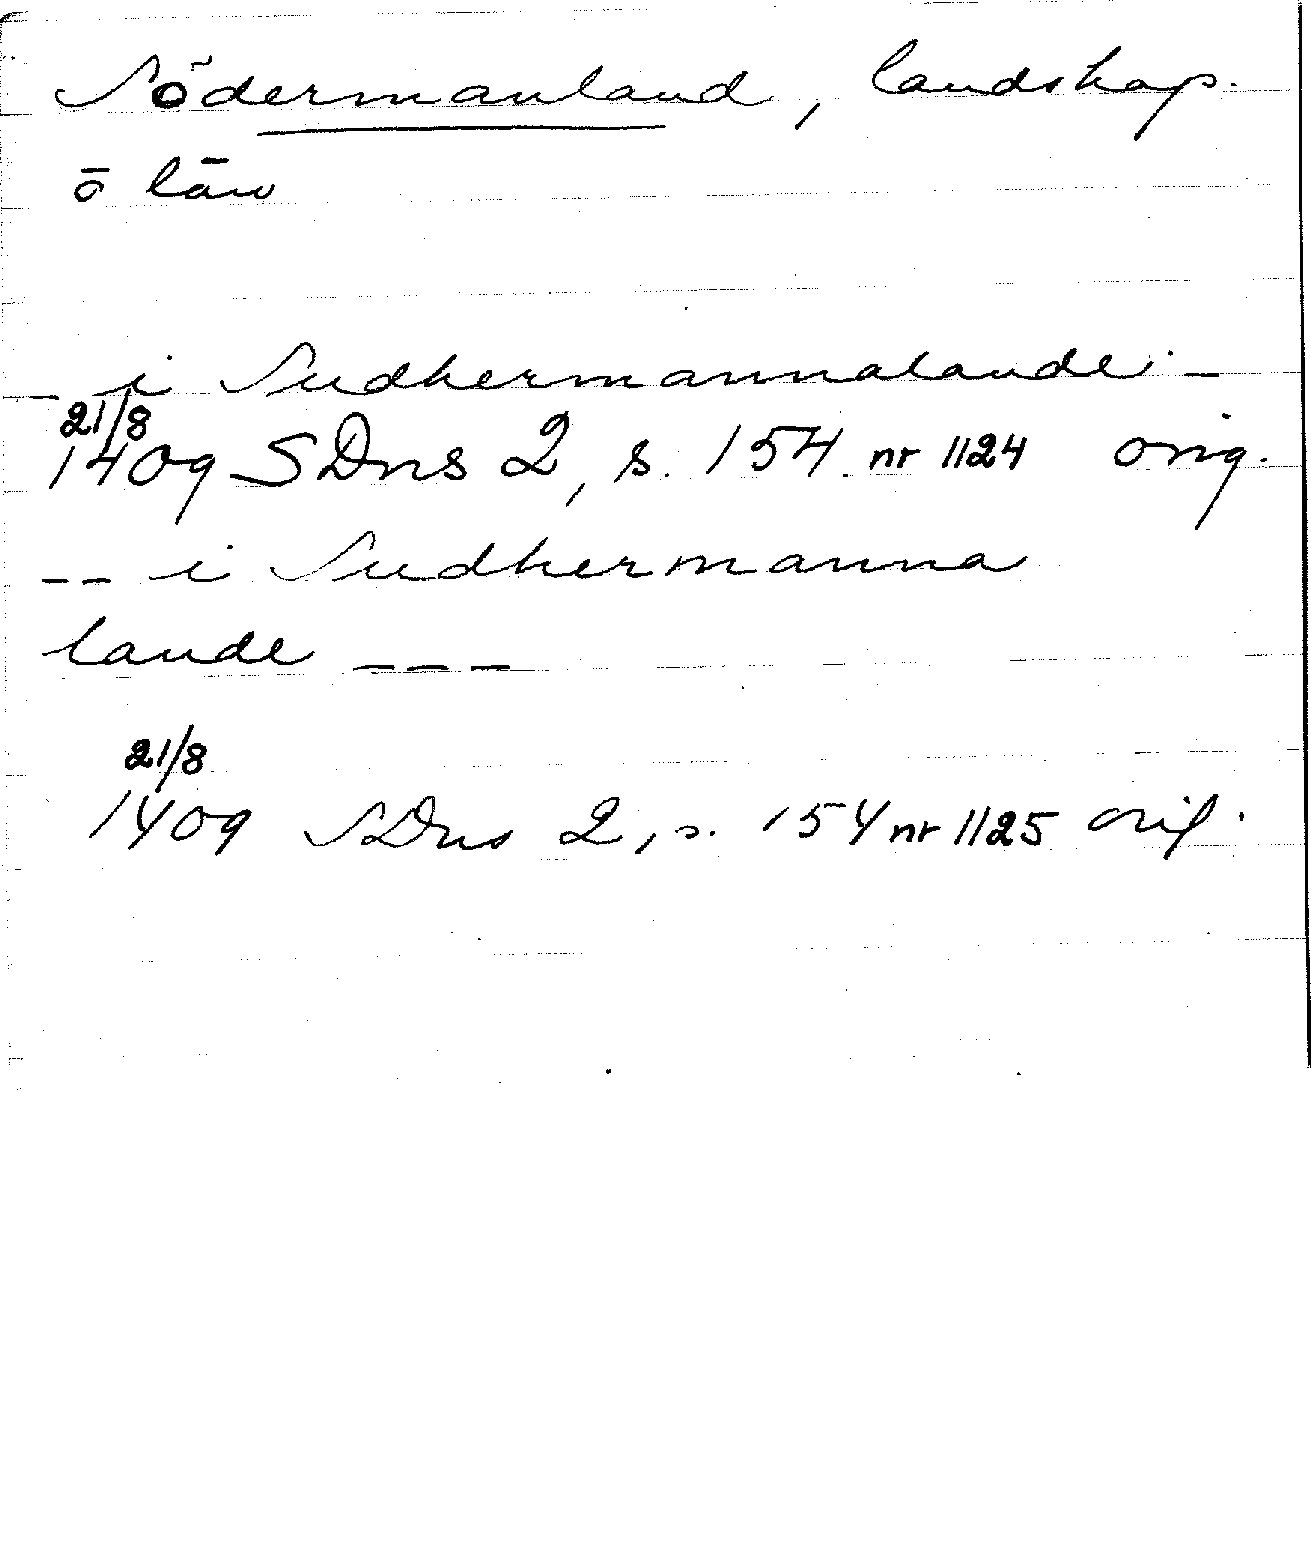 Södermanland, landskap.
ö län
_ i Sudhermannalande _
21/8
1409 SDns 2, s. 154 nr 1124 orig.
-- i Sudhermanna
lande ---
21/8
1409 SDns 2, s. 154 nr 1125 orig.